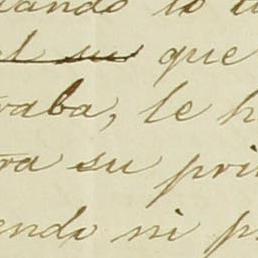 uando lo
el su que
raba, le h
ra su pri
endi ni p